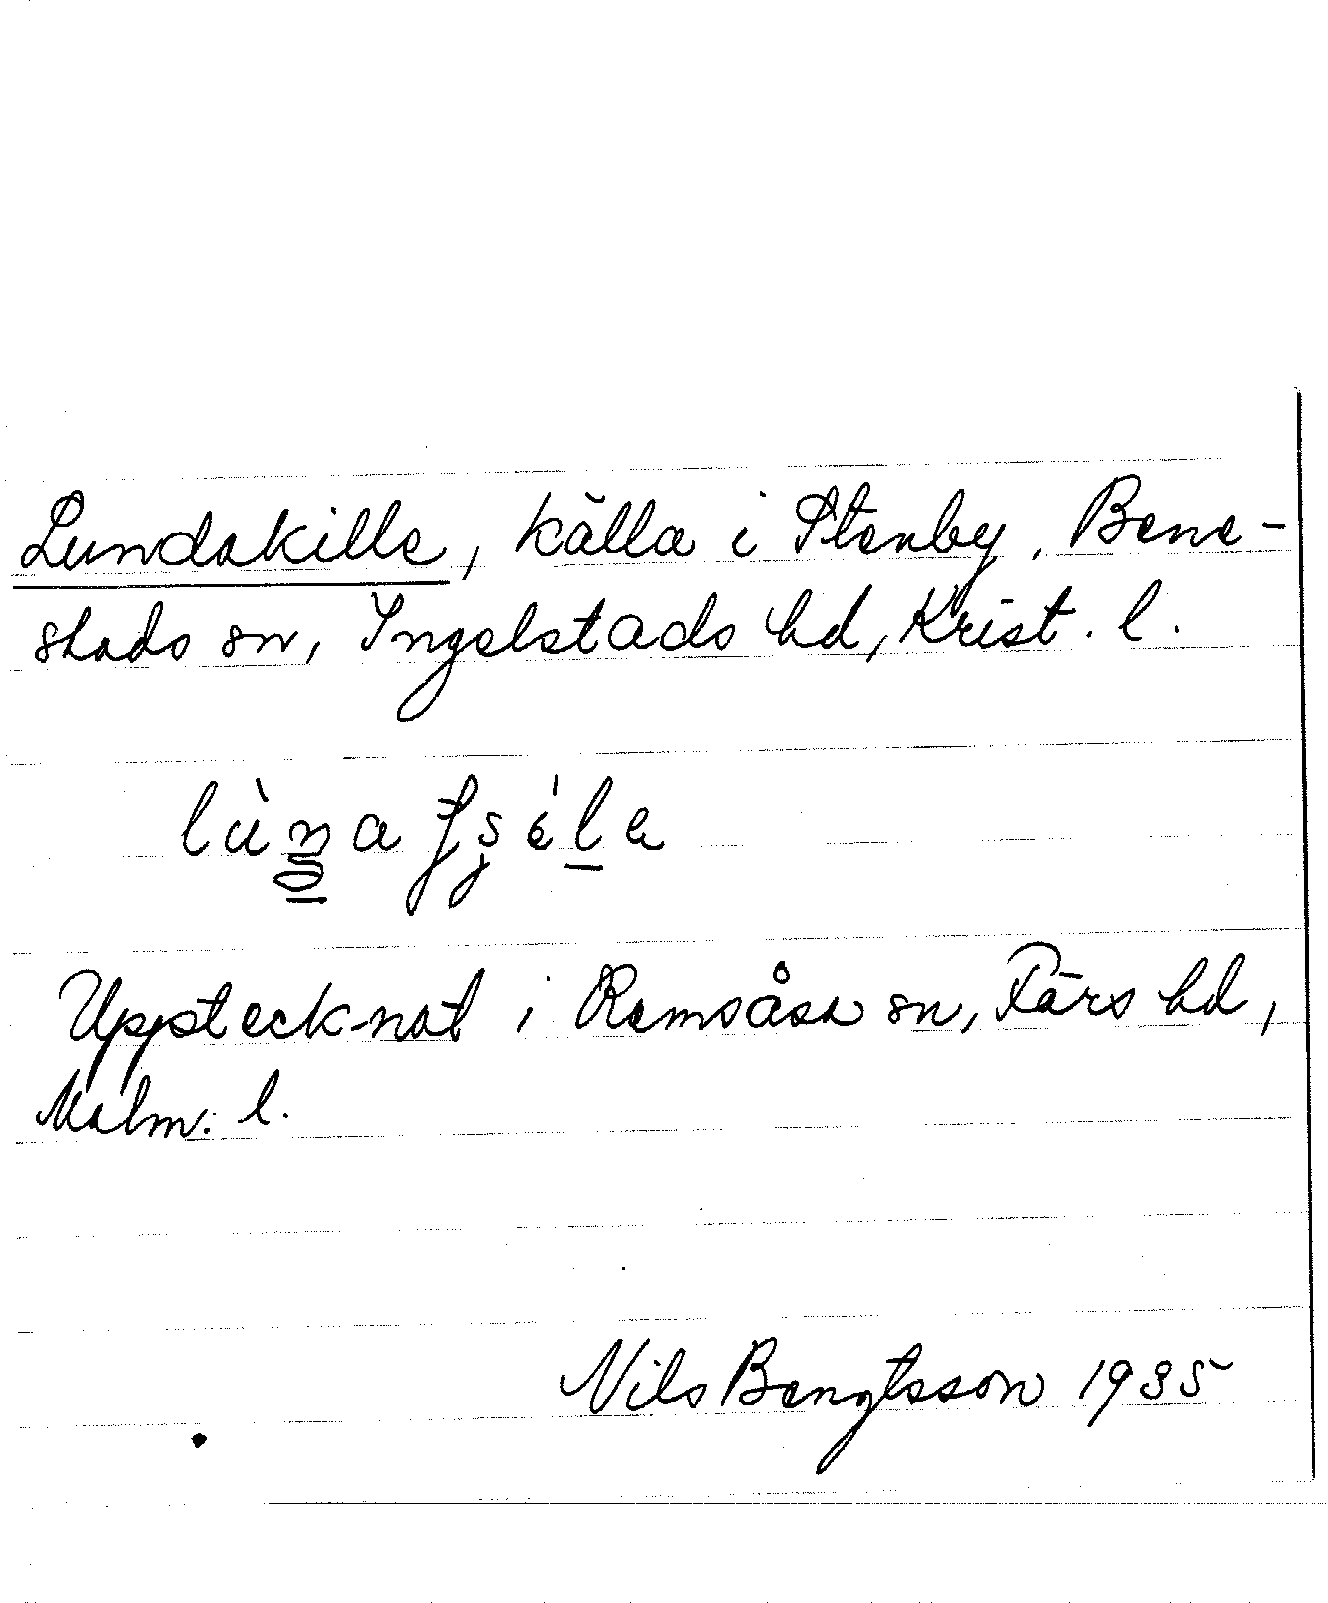 Lundakille, källa i Stenby, Bene-
stads sn, Ingelstads hd, Krist. l.
Upptecknat i Ramsåsa sn, Färs hd,
Malm. l.
Nils Bengtsson 1935